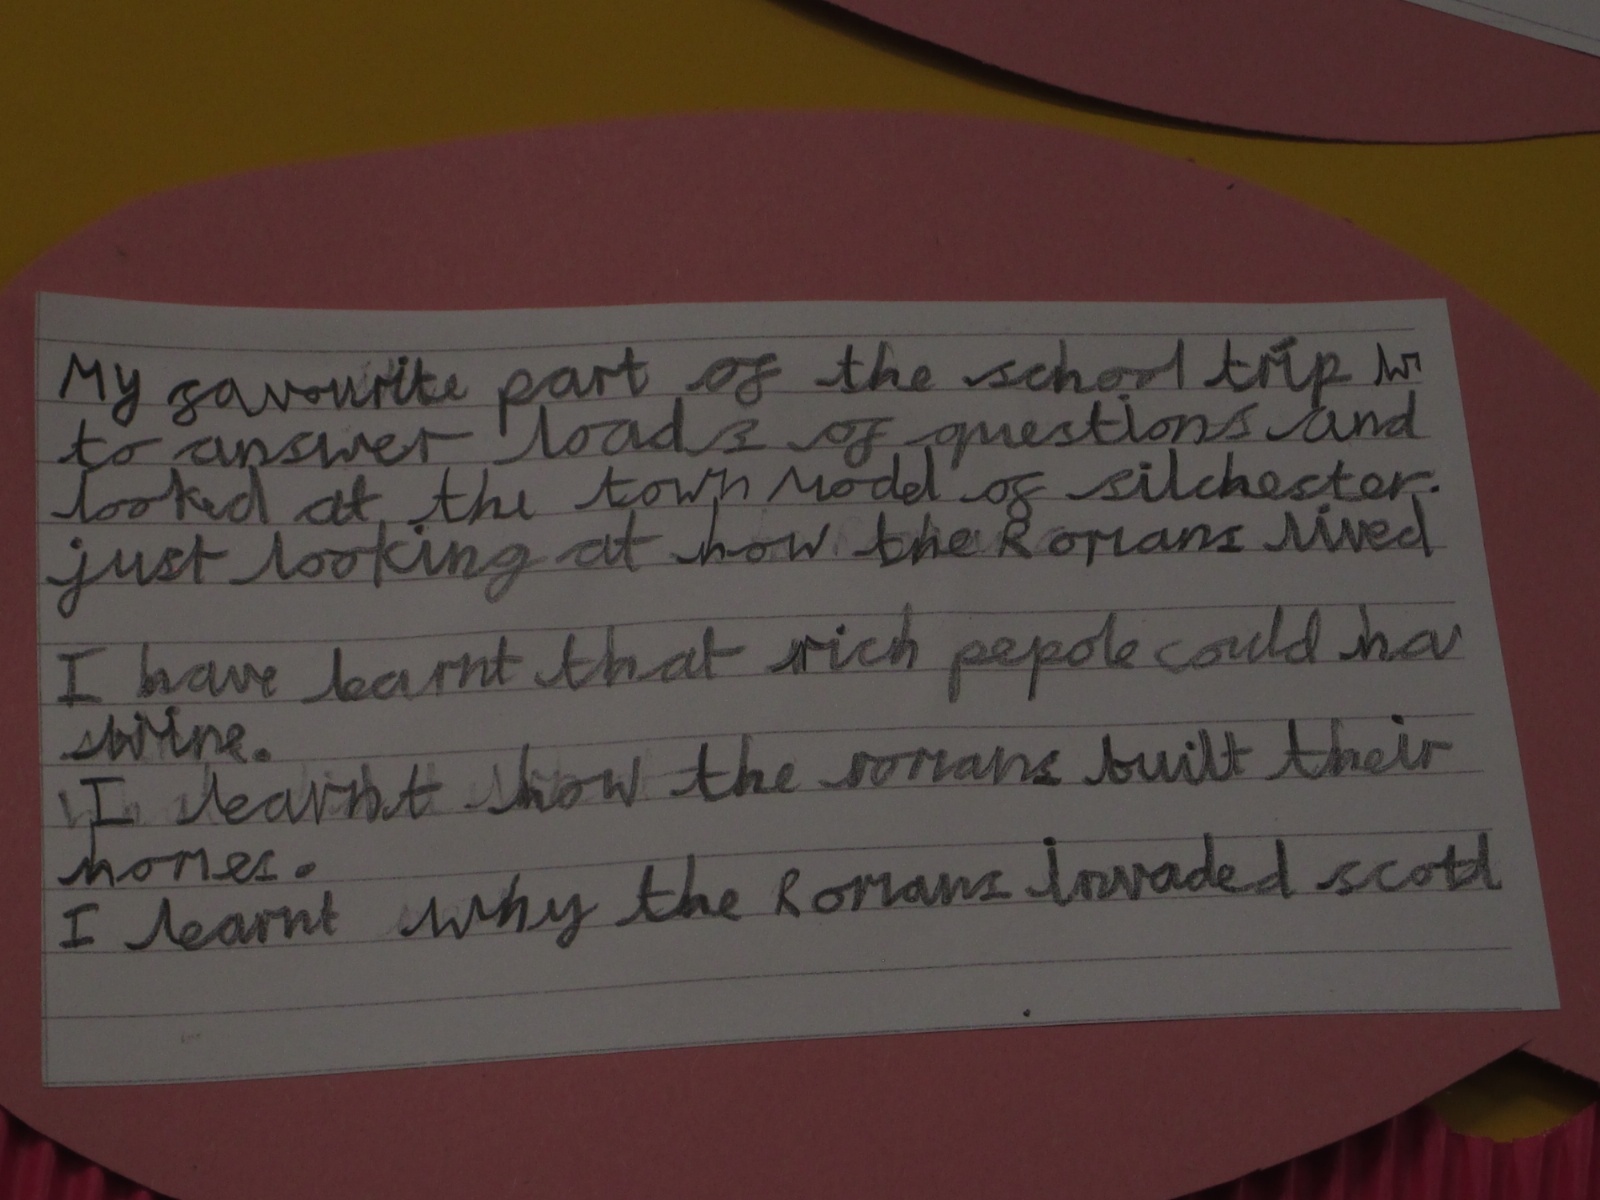 My favourite part of the school trip
to answer loads of questions and
looked at the town Model of silchester.
just looking at how the Romans lived
I have learnt that rich pepole could ha
I learnt how the romans built their
homes.
I learnt why the Romans invaded scotl